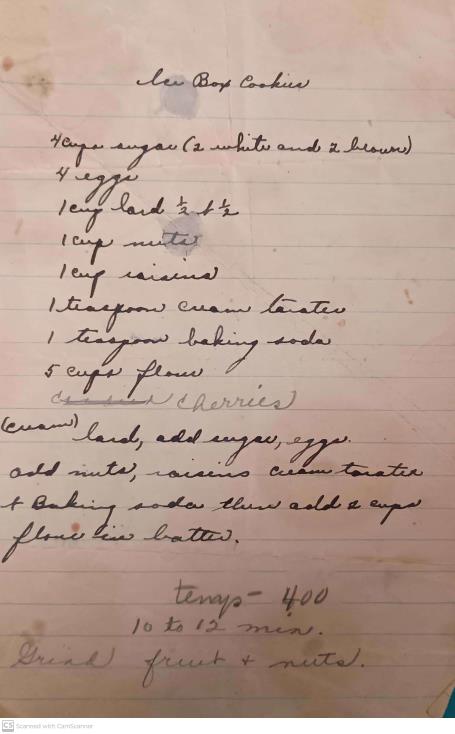 Ice Box Cookies
4 cups sugar (2 white and 2 brown)
4 eggs
1 cup lard ½ + ½
1 cup nuts
1 cup raisins
1 teaspoon cream tarater
1 teaspoon baking soda
5 cups flour
cherries
(cream) lard, add sugar, eggs.
add nuts, raisins cream tarater
+ Baking soda then add 2 cups
flour in batter.
temp - 400
10 to 12 min.
Grind fruit + nuts.
CS Scanned with CamScanner